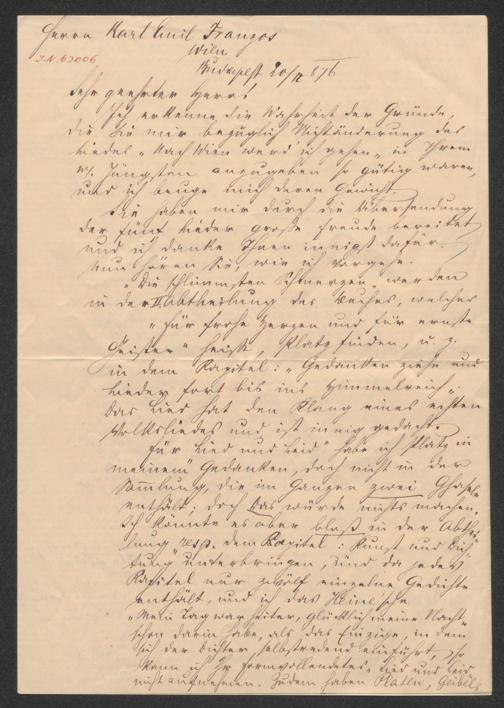 Herrn Karl Emil Franzos
Wien
I.N. 63006
Budapest 20/II 876
Sehr geehrter Herr!
Ich erkenne die Wahrheit der Gründe,
die Sie mir bezüglich Nichtänderung des
Liedes „Nach Wien werd' ich gehen" in Ihrem
W. Jüngsten anzugeben so gütig waren,
und ich beuge mich deren Gewicht.
Sie haben mir durch die Übersendung
der fünf Lieder große Freude bereitet
und ich danke Ihnen innigst dafür.
Nun hören Sie, wie ich vorgehe.
„Die schlimmsten Schmerzen" werden
in der II Abtheilung des Buches, welches
„Für frohe Herzen und für ernste
Geister" heißt, Platz finden, u. z.
in dem Kapitel: „Gedanken ziehn und
Lieder fort bis ins Himmelreich";
das Lied hat den Klang eines echten
Volksliedes und ist innig gedacht.
Für „Lied und Leid" habe ich Platz in
meinen Gedanken, doch nicht in der
Sammlung, die im Ganzen zwei Ghasele
enthält; doch das würde nichts machen.
Ich könnte es aber bloß in der Abthei-
lung resp. dem Kapitel: „Kunst und Dich-
tung" unterbringen, und da jedes
Kapitel nur zwölf einzelne Gedichte
enthält, und ich das Heine'sche
„Mein Tag war heiter, glücklich meine Nacht"
schon darin habe, als das Einzige, in dem
sich der Dichter selbstredend einführt, so
kann ich Ihr formvollendetes „Lied und Leid"
nicht aufnehmen. Zudem haben Platen, Geibel,